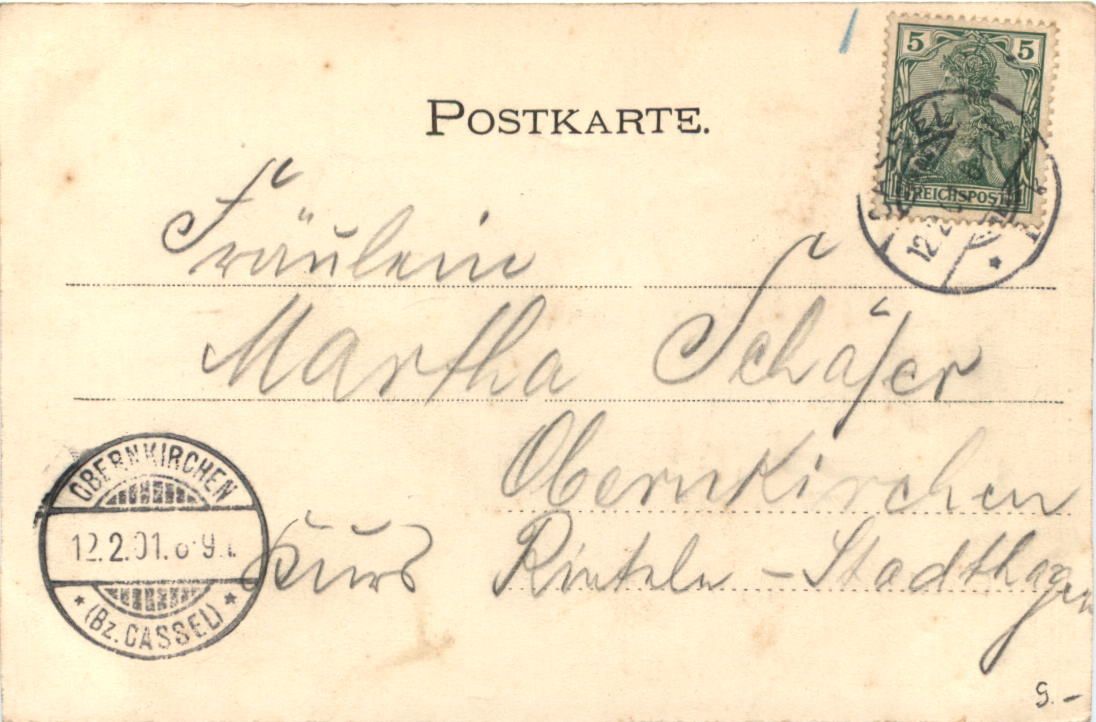 POSTKARTE.
5 5
REICHSPOST
CASSEL
12.2
Fräulein
Martha Schäfer
Obernkirchen
Kurs Rinteln - Stadthagen
OBERNKIRCHEN
12.2.01. 8-9
* (Bz. CASSEL) *
9.-